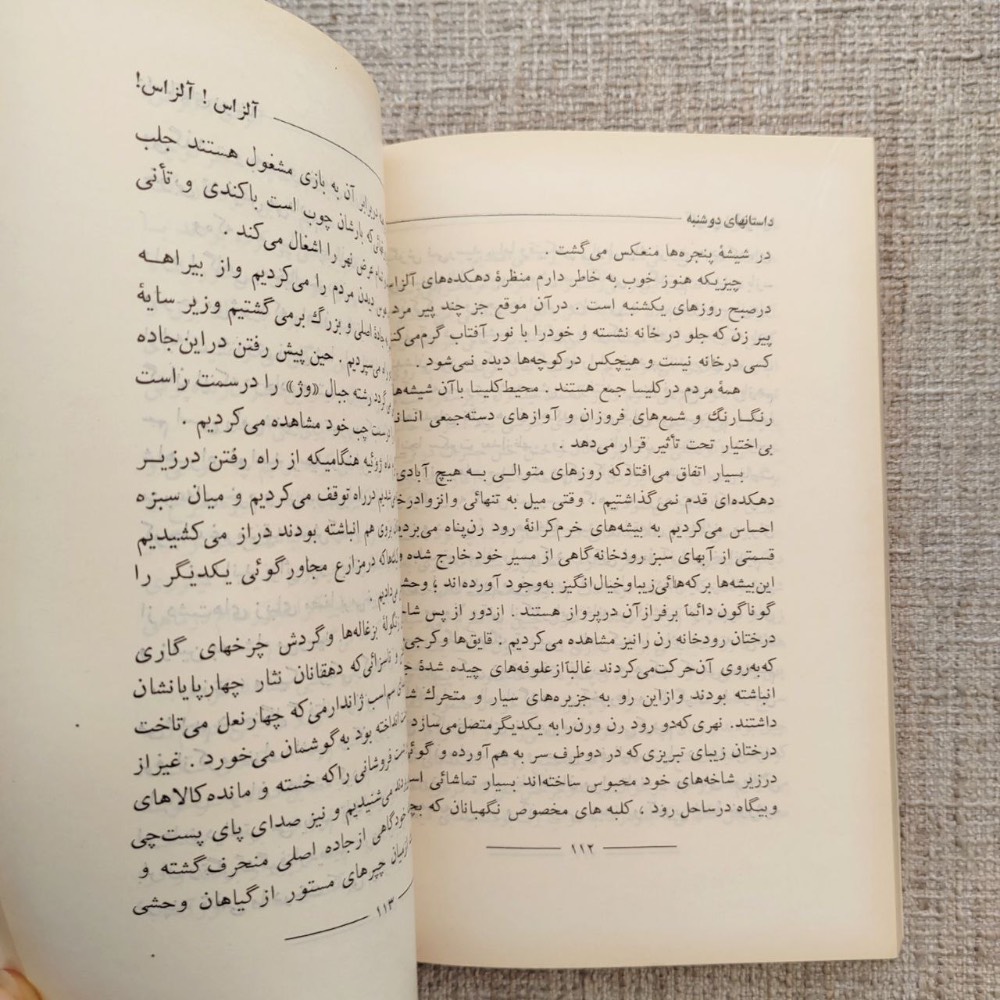 داستانهای دوشنبه
در شیشهٔ پنجره‌ها منعکس می‌گشت .
چیزیکه هنوز خوب به خاطر دارم منظرهٔ دهکده‌های آلزاس
درصبح روزهای یکشنبه است . درآن موقع جز چند پیر مرد
پیر زن که جلو در خانه نشسته و خودرا با نور آفتاب گرم می‌کنند
کسی درخانه نیست و هیچکس درکوچه‌ها دیده نمی‌شود .
همهٔ مردم در کلیسا جمع هستند . محیط کلیسا باآن شیشه‌های
رنگارنگ و شمع‌های فروزان و آوازهای دسته‌جمعی انسان
بی‌اختیار تحت تأثیر قرار می‌دهد .
بسیار اتفاق می‌افتادکه روزهای متوالی به هیچ آبادی
دهکده‌ای قدم نمی‌گذاشتیم . وقتی میل به تنهائی وانزوادرخود
احساس می‌کردیم به بیشه‌های خرم‌کرانهٔ رود رن‌پناه می‌بردیم
قسمتی از آبهای سبز رودخانه‌گاهی از مسیر خود خارج شده و
این‌بیشه‌ها برکه‌هائی‌زیباوخیال‌انگیز به‌وجود آورده‌اند ؛ وحشی
گوناگون دائماً برفرازآن درپرواز هستند . ازدور از پس شاخ
درختان رودخانه رن رانیز مشاهده می‌کردیم . قایق‌ها وکرجی
که‌به‌روی آن‌حرکت‌می‌کردند غالباًازعلوفه‌های چیده شدهٔ
انباشته بودند وازاین رو به جزیره‌های سیار و متحرک
داشتند . نهری‌که‌دو رود رن ورن‌رابه یکدیگرمتصل‌می‌سازد
درختان زیبای تبریزی‌که در دوطرف سر به هم‌آورده و گوئی
درزیر شاخه‌های خود محبوس ساخته‌اند بسیار تماشائی است
وبیگاه درساحل رود ، کلبه های مخصوص نگهبانان که
۱۱۲
آلزاس ! آلزاس !
دربرابر آن به بازی مشغول هستند جلب
که بارشان چوب است باکندی و تأنی
عرض نهر را اشغال می‌کند .
دیدن مردم را می‌کردیم واز بیراهه
جادهٔ اصلی و بزرگ برمی‌گشتیم وزیر سایهٔ
می‌سپردیم . حین پیش رفتن دراین‌جاده
گردد رشته جبال «وژ» را درسمت راست
درسمت چپ خود مشاهده می‌کردیم .
ژوئیه هنگامیکه از راه رفتن درزیر
درراه توقف می‌کردیم و میان سبزه
روی هم انباشته بودند دراز می‌کشیدیم
که درمزارع مجاورگوئی یکدیگر را
بزغاله‌ها وگردش چرخهای گاری
و ناسزائی‌که دهقانان نثار چهارپایانشان
سم اسب ژاندارمی‌که چهارنعل می‌تاخت
انداخته بود به‌گوشمان می‌خورد . غیر از
فروشانی راکه خسته و مانده‌کالاهای
می‌شنیدیم و نیز صدای پای پست‌چی
خودگاهی ازجاده اصلی منحرف‌گشته و
ازمیان چپرهای مستور ازگیاهان وحشی
۱۱۳